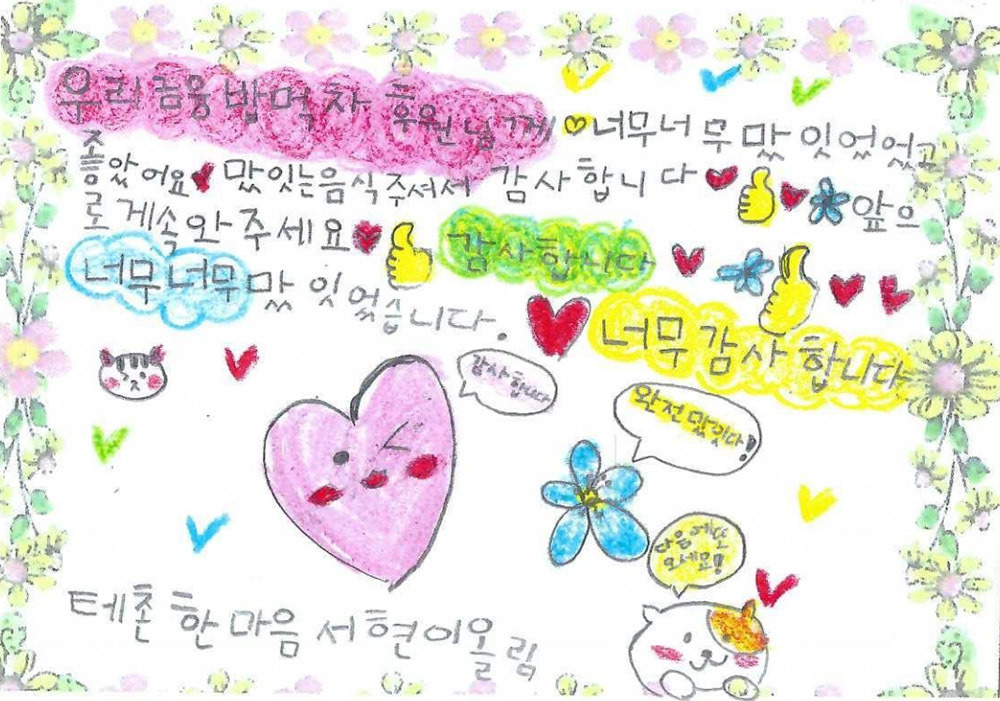 우리금융 밥먹차 후원님께 너무너무 맜잇었었고
좋았어요 맜잇는음식주셔서 감사합니다 앞으
로 게속와주세요 감사합니다
너무너무맜잇었습니다.
너무감사합니다
감사합니다
완전맜잇다!
다음에또
오세요!
테촌한마음서현이올림